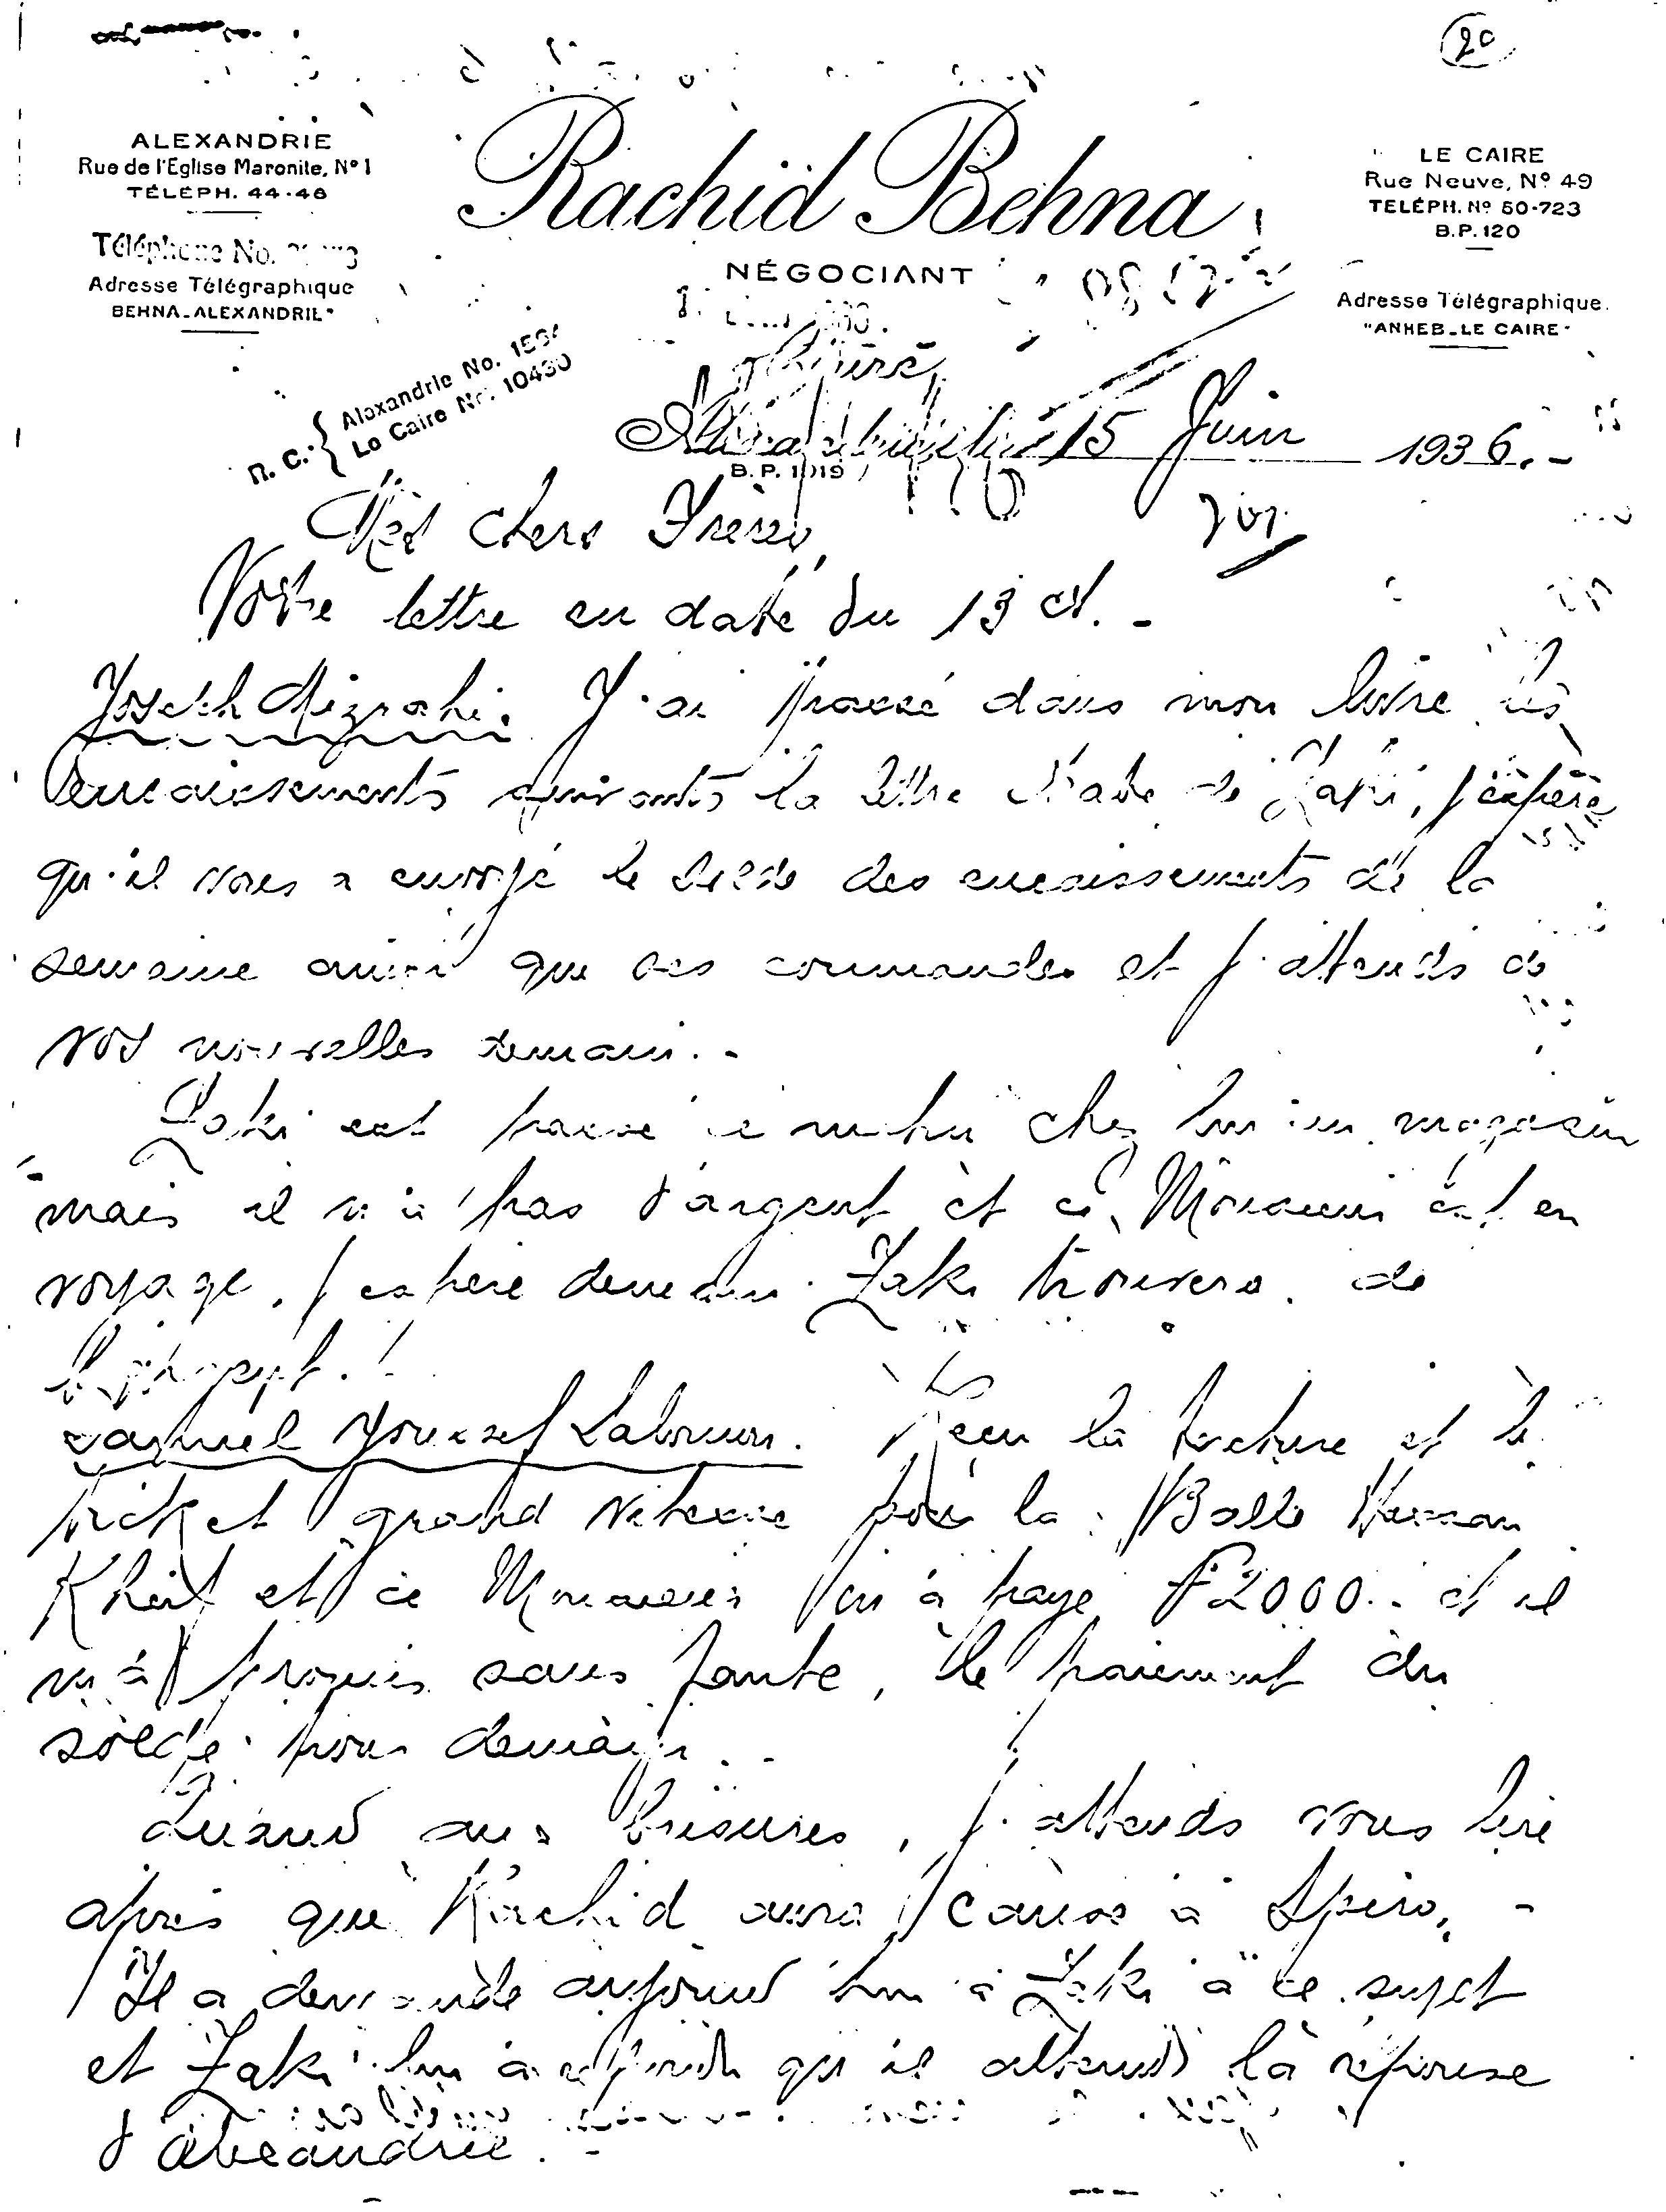 20
ALEXANDRIE
Rue de l'Eglise Maronite, Nº 1
TÉLÉPH. 44-46
Téléphone No.
Adresse Télégraphique
BEHNA-ALEXANDRIE"
Rachid Behna
NÉGOCIANT
LE CAIRE
Rue Neuve, Nº 49
TELÉPH. Nº 50-723
B.P. 120
Adresse Télégraphique.
"ANHEB-LE CAIRE"
R. C. { Alexandrie No.
Le Caire No. 10430
15 Juin 1936.-
B.P. 1019
Mes chers Frères,
Votre lettre en date du 13 ct. -
Joseph Mizrahi. J'ai passé dans mon livre les
encaissements suivants la lettre de Zaki, j'espère
qu'il vous a envoyé le solde des encaissements de la
semaine ainsi que ses commandes et j'attends de
vos nouvelles demain. -
Zaki est passé chez lui au magasin
mais il n'a pas d'argent et ce Monsieur est en
voyage, j'espère demain Zaki trouvera de
l'argent.
Samuel Youssef Laboun. Reçu la facture et le
ticket grand vitesse pour la Balle Hassan
Kheir et ce Monsieur m'a payé F 2000.- et il
m'a promis sans faute, le paiement du
solde pour demain. -
Quand aux brisures, j'attends vous lire
après que Rachid aura causé à Spiro. -
Il a demandé aujourd'hui à Zaki à ce sujet
et Zaki lui a répondu qu'il attend la réponse
d'Alexandrie. -